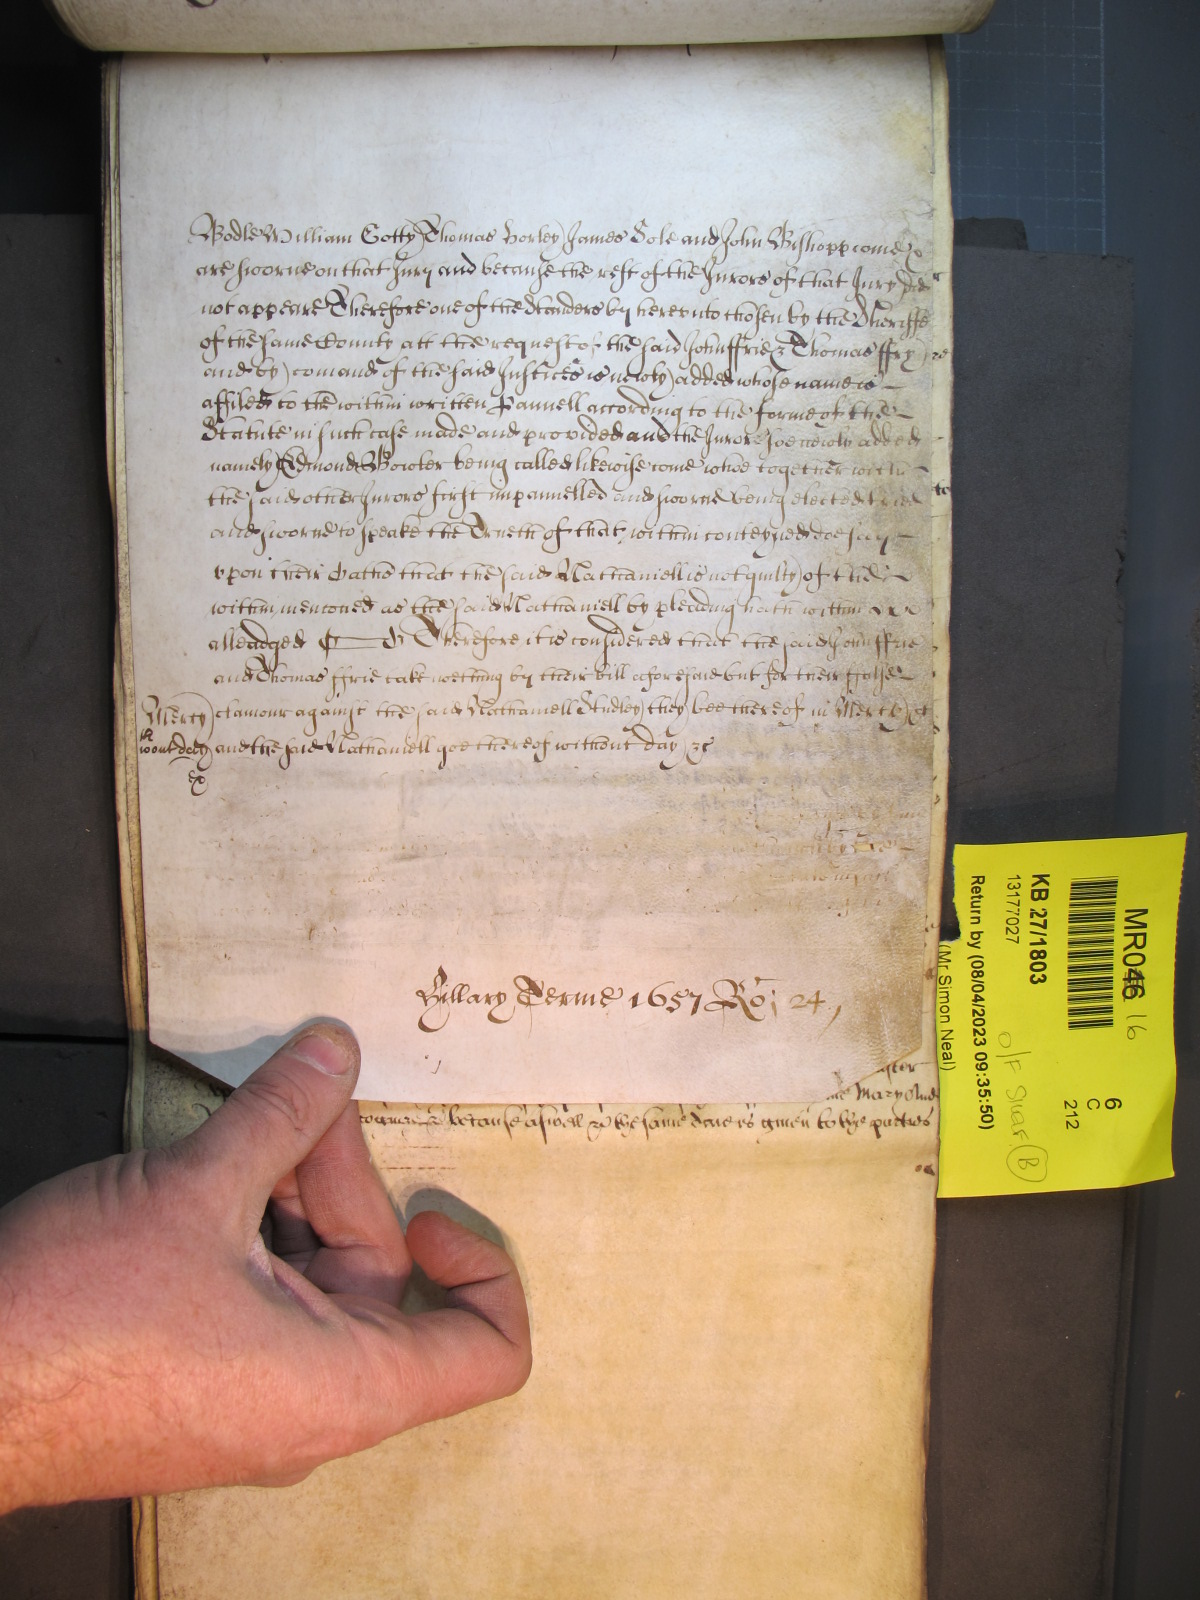 Bodle William Gotty Thomas Horley James Sole and John Bishopp come &
are sworne on that Jury and because the rest of the Jurors of that Jury did
not appeare Therefore one of the Standers by hereunto chosen by the Sheriffe
of the same County att the request of the said John ffrie & Thomas ffry
and by comand of the said Justices is newly added whose name is
affiled to the within written Pannell according to the forme of the
Statute in such case made and provided and the Juror soe newly added
namely Edmond Bowler being called likewise come whoe together with
the said other Jurors first impannelled and sworne being elected tried
and sworne to speake the Trueth of that within conteyned doe say
upon their Oathe that the said Nathaniell is not guilty of the
within menconed as the said Nathaniell by pleading hath within
alleadged Therefore it is considered that the said John ffrie
and Thomas ffrie take noething by their bill aforesaid but for their ffalse
Mercy clamour against the said Nathaniell Studley they bee thereof in Mercy &c
wout day and the said Nathaniell goe thereof without day &c
ex
Hillary Terme 1657 Ro: 24
Mary
because aswell the same given to the
MR046 16
KB 27/1803
13177027
Return by (08/04/2023 09:35:50)
(Mr Simon Neal)
6
C
212
O/F Shelf B